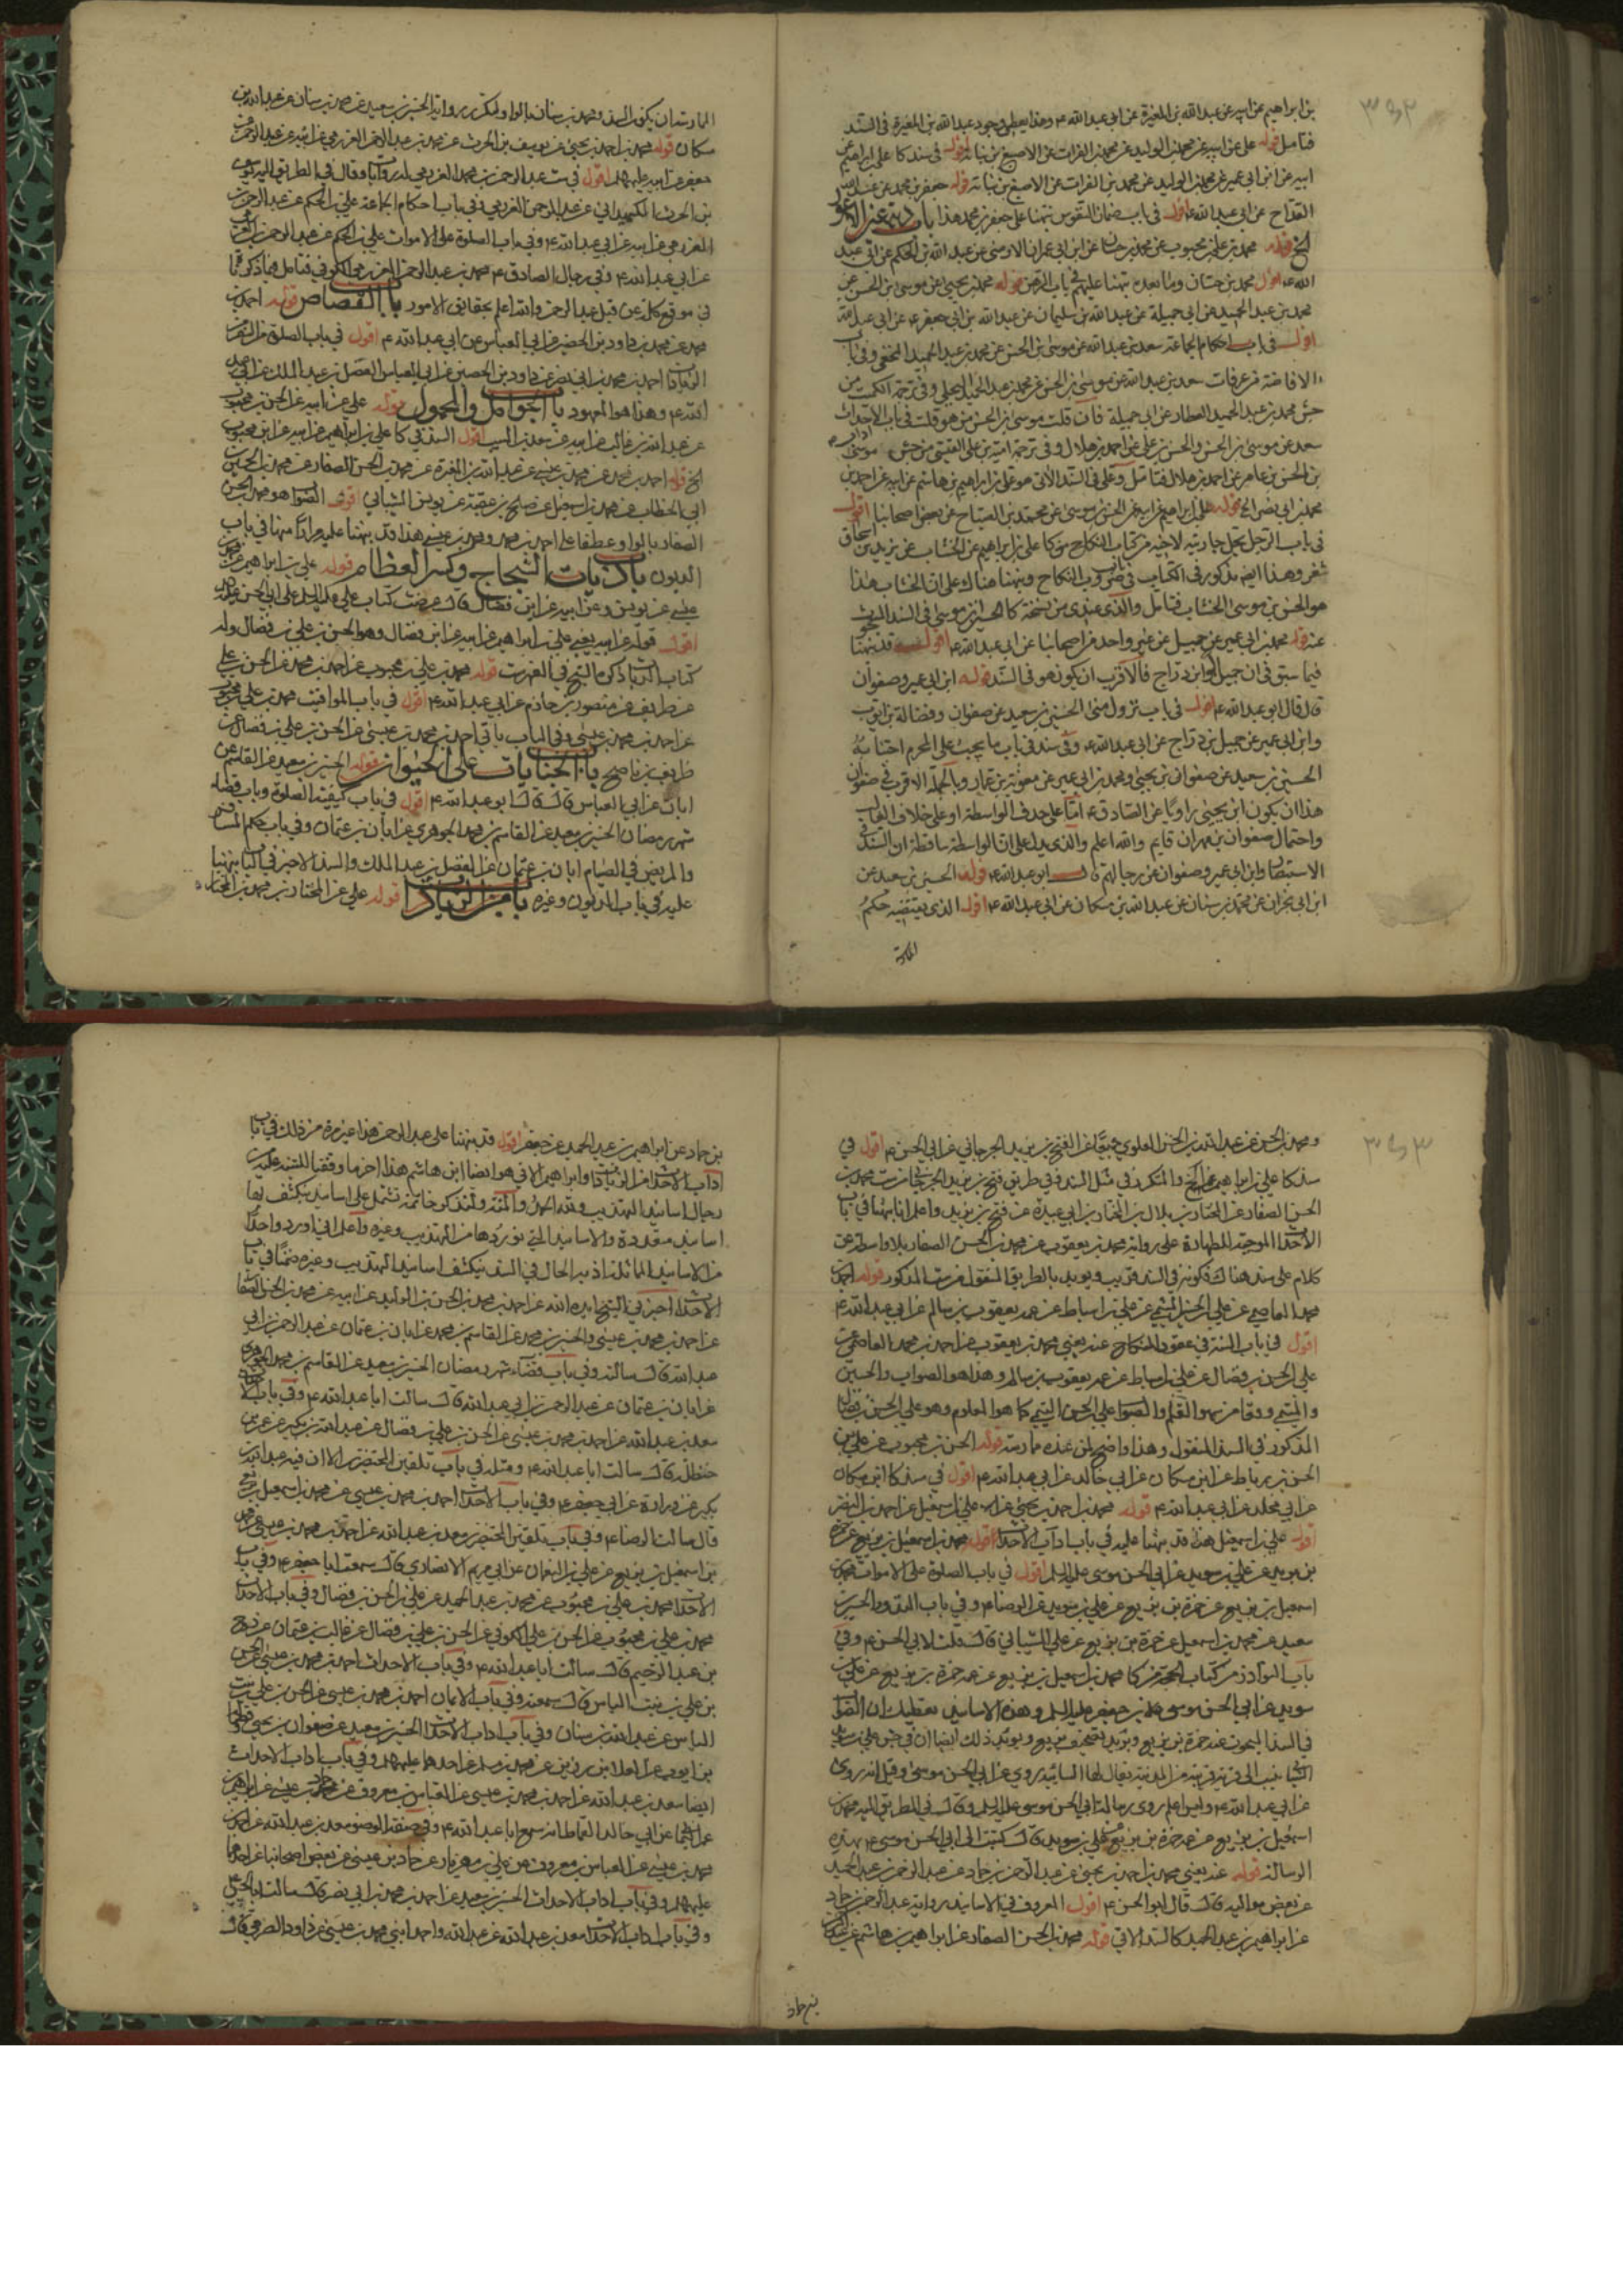 بن ابراهيم عن ابيه عن عبد الله بن المغيرة عن ابى عبد الله ع وهذا يعطى وجود عبد الله بن المغيرة فى السند
فتامل قوله على عن ابيه عن محمد بن الوليد عن محمد بن الفرات عن الاصبغ بن نباتة اقول فى سند كا على بن ابراهيم عن
ابيه عن ابن ابى عمير عن محمد بن الوليد عن محمد بن الفرات عن الاصبغ بن نباتة قوله جعفر بن محمد عن عبد الله
القداح عن ابى عبد الله ع اقول فى باب ضمان النفوس نبهنا على جعفر بن محمد هذا باب دية عين الاعور
الخ قوله محمد بن على بن محبوب عن محمد بن حسان عن ابن ابى عمران الارمنى عن عبد الله بن الحكم عن ابى عبد
الله ع اقول محمد بن حسان وما بعده نبهنا عليهم فى باب الرهن قوله محمد بن يحيى عن موسى بن الحسن عن
محمد بن عبد الحميد عن ابى جميلة عن عبد الله بن سليمان عن عبد الله بن ابى جعفر ع عن ابى عبد الله
اقول فى باب احكام الجماعة سعد بن عبد الله عن موسى بن الحسن عن محمد بن عبد الحميد النخعى وفى باب
الافاضة من عرفات سعد بن عبد الله عن موسى بن الحسن عن محمد بن عبد الحميد البجلى وفى ترجمة الكميت من
كش محمد بن عبد الحميد العطار عن ابى جميلة فان قلت موسى بن الحسن من هو قلت فى باب الاحداث
سعد عن موسى بن الحسن والحسن بن على عن احمد بن هلال وفى ترجمة امية بن على القيسى من جش موسى
بن الحسن بن عامر عن احمد بن هلال فتامل وعلى فى السند الاتى هو على بن ابراهيم بن هاشم عن ابيه عن احمد بن
محمد بن ابى نصر الخ قوله على بن ابراهيم عن ابيه عن الحسن بن موسى عن محمد بن الصباح عن بعض اصحابنا اقول
فى باب الرجل يحل جاريته لاخيه من كتاب النكاح من كا على بن ابراهيم عن الخشاب عن يزيد بن اسحاق
شعر وهذا ايضا مذكور فى الكتاب فى باب ضروب النكاح ونبهنا هناك على ان الخشاب هذا
هو الحسن بن موسى الخشاب فتامل والذى عندى من نسخة كا الحسين بن موسى فى السند المبحوث
عنه قوله محمد بن ابى عمير عن جميل عن غير واحد من اصحابنا عن ابى عبد الله ع اقول قد نبهنا
فيما سبق فى ان جميل هو ابن دراج فالاقرب ان يكون هو فى السند قوله ابن ابى عمير وصفوان
قال قال ابو عبد الله ع اقول فى باب نزول منى الحسين بن سعيد عن صفوان وفضالة بن ايوب
وابن ابى عمير عن جميل بن دراج عن ابى عبد الله ع وفى سند فى باب ما يجب على المحرم اجتنابه
الحسين بن سعيد عن صفوان بن يحيى ومحمد بن ابى عمير عن معوية بن عمار وبالجملة الاقرب فى صفوان
هذا ان يكون ابن يحيى راويا عن الصادق ع اما على حذف الواسطة او على خلاف الغالب
واحتمال صفوان بن مهران قايم والله اعلم والذى يدل على ان الواسطة ساقطة ان السند فى
الاستبصار وابن ابى عمير وصفوان عن رجالهم قال ابو عبد الله ع قوله الحسين بن سعيد عن
ابن ابى نجران عن محمد بن سنان عن عبد الله بن مسكان عن ابى عبد الله ع اقول الذى يقتضيه حكم
الممارسة ان يكون السند ومحمد بن سنان بالواو لتكرر رواية الحسين بن سعيد عن محمد بن سنان عن عبد الله بن
مسكان قوله محمد بن احمد بن يحيى عن يوسف بن الحرث عن محمد بن عبد الرحمن العرزمى عن ابيه عبد الرحمن عن
جعفر عن ابيه عليهما السلم اقول فى ست عبد الرحمن بن محمد العرزمى له روايات وقال فى الطريق اليه يوسف
بن الحرث الكميدانى عن عبد الرحمن العرزمى وفى باب احكام الجماعة على بن الحكم عن عبد الرحمن
العرزمى عن ابيه عن ابى عبد الله ع وفى باب الصلوة على الاموات على بن الحكم عن عبد الرحمن العرزمى
عن ابى عبد الله ع وفى رجال الصادق ع محمد بن عبد الرحمن العرزمى الكوفى فتامل
فى موقع كلمة عن قبل عبد الرحمن والله اعلم بحقايق الامور باب القصاص قوله احمد بن
محمد عن محمد بن داود بن الحصين عن ابى العباس عن ابى عبد الله ع اقول فى باب الصلوة من
الزيادات احمد بن محمد بن ابى نصر عن داود بن الحصين عن ابى العباس الفضل بن عبد الملك عن ابى عبد
الله ع وهذا هو المعهود باب الحوامل والحمول قوله على عن ابيه عن الحسن بن محبوب
عن عبد الله بن غالب عن ابيه عن سعيد بن المسيب اقول السند فى كا على بن ابراهيم عن ابيه عن ابن محبوب
الخ قوله احمد بن محمد عن محمد بن عيسى عن عبد الله بن المغيرة عن محمد بن الحسن الصفار عن محمد بن الحسين بن
ابى الخطاب عن محمد بن اسمعيل عن صالح بن عقبة عن يونس الشيبانى اقول الصواب هو محمد بن الحسن
الصفار بالواو عطفا على احمد بن محمد ومحمد بن عيسى هذا قد نبهنا عليه مرارا منها فى باب
الديون باب ديات الشجاج وكسر العظام قوله على بن ابراهيم عن محمد بن
عيسى عن يونس وعن ابيه عن ابن فضال قال عرضت كتاب على عليه السلم على ابى الحسن عليه السلم
اقول قوله عن ابيه يعنى على بن ابراهيم عن ابيه عن ابن فضال وهو الحسن بن على بن فضال وله
كتاب الديات ذكره الشيخ فى الفهرست قوله محمد بن على بن محبوب عن احمد بن محمد عن الحسن بن على
عن ظريف عن منصور بن حازم عن ابى عبد الله ع اقول فى باب المواقيت محمد بن على بن محبوب
عن احمد بن محمد بن عيسى وفى الباب ياتى احمد بن محمد بن عيسى عن الحسن بن على بن فضال عن
ظريف بن ناصح باب الجنايات على الحيوان قوله الحسين بن سعيد عن القاسم عن
ابان عن ابى العباس قال قال ابو عبد الله ع اقول فى باب كيفية الصلوة وباب قضاء
شهر رمضان الحسين بن سعيد عن القاسم بن محمد الجوهرى عن ابان بن عثمان وفى باب حكم المسافر
والمريض فى الصيام ابان بن عثمان عن الفضل بن عبد الملك والسند الاخير فى الباب نبهنا
عليه فى باب الديون وغيره باب من الزيادات قوله على عن المختار بن محمد بن المختار
ومحمد بن الحسن عن عبد الله بن الحسن العلوى جميعا عن الفتح بن يزيد الجرجانى عن ابى الحسن ع اقول فى
سند كا على بن ابراهيم عن الخ والمتكرر فى مثل السند وفى طريق فتح بن يزيد الجرجانى من ست محمد بن
الحسن الصفار عن المختار بن بلال بن المختار بن ابى عبيدة عن فتح بن يزيد واعلم انا نبهنا فى باب
الاحداث الموجبة للطهارة على رواية محمد بن يعقوب عن محمد بن الحسن الصفار بلا واسطة عن
كلام على سند هناك فكونه فى السند قريب ويؤيد بالطريق المنقول من ست المذكور قوله احمد بن
محمد العاصمى عن على بن الحسن الميثمى عن على بن اسباط عن عمه يعقوب بن سالم عن ابى عبد الله ع
اقول فى باب السنة فى عقود النكاح عنه يعنى محمد بن يعقوب عن احمد بن محمد العاصمى عن
على بن الحسن بن فضال عن على بن اسباط عن عمه يعقوب بن سالم وهذا هو الصواب والحسين
والميثمى وقعا من سهو القلم والصواب على بن الحسن التيمى كما هو المعلوم وهو على بن الحسن بن فضال
المذكور فى السند المنقول وهذا واضح لمن عنده ممارسة قوله الحسن بن محبوب عن على بن
الحسن بن رباط عن ابن مسكان عن ابى خالد عن ابى عبد الله ع اقول فى سند كا ابن مسكان
عن ابى مخلد عن ابى عبد الله ع قوله محمد بن احمد بن يحيى عن على بن اسمعيل عن احمد بن النضر
اقول على بن اسمعيل هذا قد نبهنا عليه فى باب اداب الاحداث اقول محمد بن اسمعيل بن بزيع عن حمزة
بن بزيد عن على بن سويد عن ابى الحسن موسى عليه السلم اقول فى باب الصلوة على الاموات محمد بن
اسمعيل بن بزيع عن حمزة بن بزيع عن على بن سويد عن الرضا ع وفى باب الحسين بن
سعيد عن محمد بن اسمعيل عن حمزة بن بزيع عن على الشيبانى قال قلت لابى الحسن ع وفى
باب النوادر من كتاب الحج من كا محمد بن اسمعيل بن بزيع عن عمه حمزة بن بزيع عن على بن
سويد عن ابى الحسن موسى بن جعفر عليه السلم وهذه الاسانيد تعطيك ان الصواب
فى السند المبحوث عنه حمزة بن بزيع وبزيد تصحيف بزيع ويؤيد ذلك ايضا ان فى جش على بن سويد
السائى ينسب الى قرية قريبة من المدينة يقال لها السائية روى عن ابى الحسن موسى وقيل انه روى
عن ابى عبد الله ع وليس اعلم روى رسالة ابى الحسن موسى عليه السلم وقال فى الطريق اليه محمد بن
اسمعيل بن بزيع عن عمه حمزة بن بزيع عن على بن سويد قال كتب الى ابى الحسن موسى ع بهذه
الرسالة قوله عنه يعنى محمد بن احمد بن يحيى عن عبد الرحمن بن حماد عن عبد الرحمن بن عبد الحميد
عن بعض مواليه قال قال ابو الحسن ع اقول المعروف فى الاسانيد رواية عبد الرحمن بن حماد
عن ابراهيم بن عبد الحميد كالسند الاتى قوله محمد بن الحسن الصفار عن ابراهيم بن هاشم عن عبد الرحمن
بن حماد عن ابراهيم بن عبد الحميد عن جعفر اقول قد نبهنا على عبد الرحمن هذا غير مرة من ذلك فى باب
اداب الاحداث من الزيادات وابراهيم الاتى هو ايضا ابن هاشم هذا اخر ما وفقنا للتنبيه عليه من
رجال اسانيد التهذيب ولله الحمد والمنة ولنذكر خاتمة تشتمل على اسانيد يكشف بها
اسانيد متعددة والاسانيد التى نوردها من التهذيب وغيره واعلم انى اورد واحدا
من الاسانيد المماثلة اذ به الحال فى السند يكشف اسانيد التهذيب وغيره ضمنا فى باب
الاحداث اخبرنى الشيخ ايده الله عن احمد بن محمد بن الحسن بن الوليد عن ابيه عن محمد بن الحسن الصفار
عن احمد بن محمد بن عيسى والحسين بن محمد عن القاسم بن محمد عن ابان بن عثمان عن عبد الرحمن بن ابى
عبد الله قال سالته وفى باب قضاء شهر رمضان الحسين بن سعيد عن القاسم بن محمد الجوهرى
عن ابان بن عثمان عن عبد الرحمن بن ابى عبد الله قال سالت ابا عبد الله ع وفى باب
سعد بن عبد الله عن احمد بن محمد بن عيسى عن الحسن بن على بن فضال عن عبد الله بن بكير عن عمر بن
حنظلة قال سالت ابا عبد الله ع ومثله فى باب تلقين المحتضرين الا ان فيه عبد الله بن
بكير عن زرارة عن ابى جعفر ع وفى باب الاحداث احمد بن محمد بن عيسى عن محمد بن اسمعيل بن بزيع
قال سالت الرضا ع وفى باب تلقين المحتضرين سعد بن عبد الله عن احمد بن محمد بن عيسى عن محمد
بن اسمعيل بن بزيع عن على بن النعمان عن ابى مريم الانصارى قال سمعت ابا جعفر ع وفى باب
الاحداث محمد بن على بن محبوب عن محمد بن عبد الحميد عن على بن الحسن بن فضال وفى باب الاحداث
محمد بن على بن محبوب عن الحسن بن على الكوفى عن الحسن بن على بن فضال عن غالب بن عثمان عن روح
بن عبد الرحيم قال سالت ابا عبد الله ع وفى باب الاحداث احمد بن محمد بن عيسى عن الحسن
بن على بن بنت الياس قال سمعته وفى باب الايمان احمد بن محمد بن عيسى عن الحسن بن على بن بنت
الياس عن عبد الله بن سنان وفى باب اداب الاحداث الحسين بن سعيد عن صفوان بن يحيى وفضالة
بن ايوب عن العلاء بن رزين عن محمد بن مسلم عن احدهما عليهما السلم وفى باب اداب الاحداث
ايضا سعد بن عبد الله عن احمد بن محمد بن عيسى عن العباس بن معروف عن حماد بن عيسى عن ابراهيم بن
عمر اليمانى عن ابى خالد القماط انه سمع ابا عبد الله ع وفى صفة الوضوء سعد بن عبد الله عن احمد بن
محمد بن عيسى عن العباس بن معروف عن على بن مهزيار عن حماد بن عيسى عن بعض اصحابنا عن احدهما
عليهما السلم وفى باب اداب الاحداث الحسين بن سعيد عن احمد بن محمد بن ابى نصر قال سالت ابا الحسن ع
وفى باب اداب الاحداث سعد بن عبد الله عن عبد الله واحمد ابنى محمد بن عيسى عن داود الصرمى قال